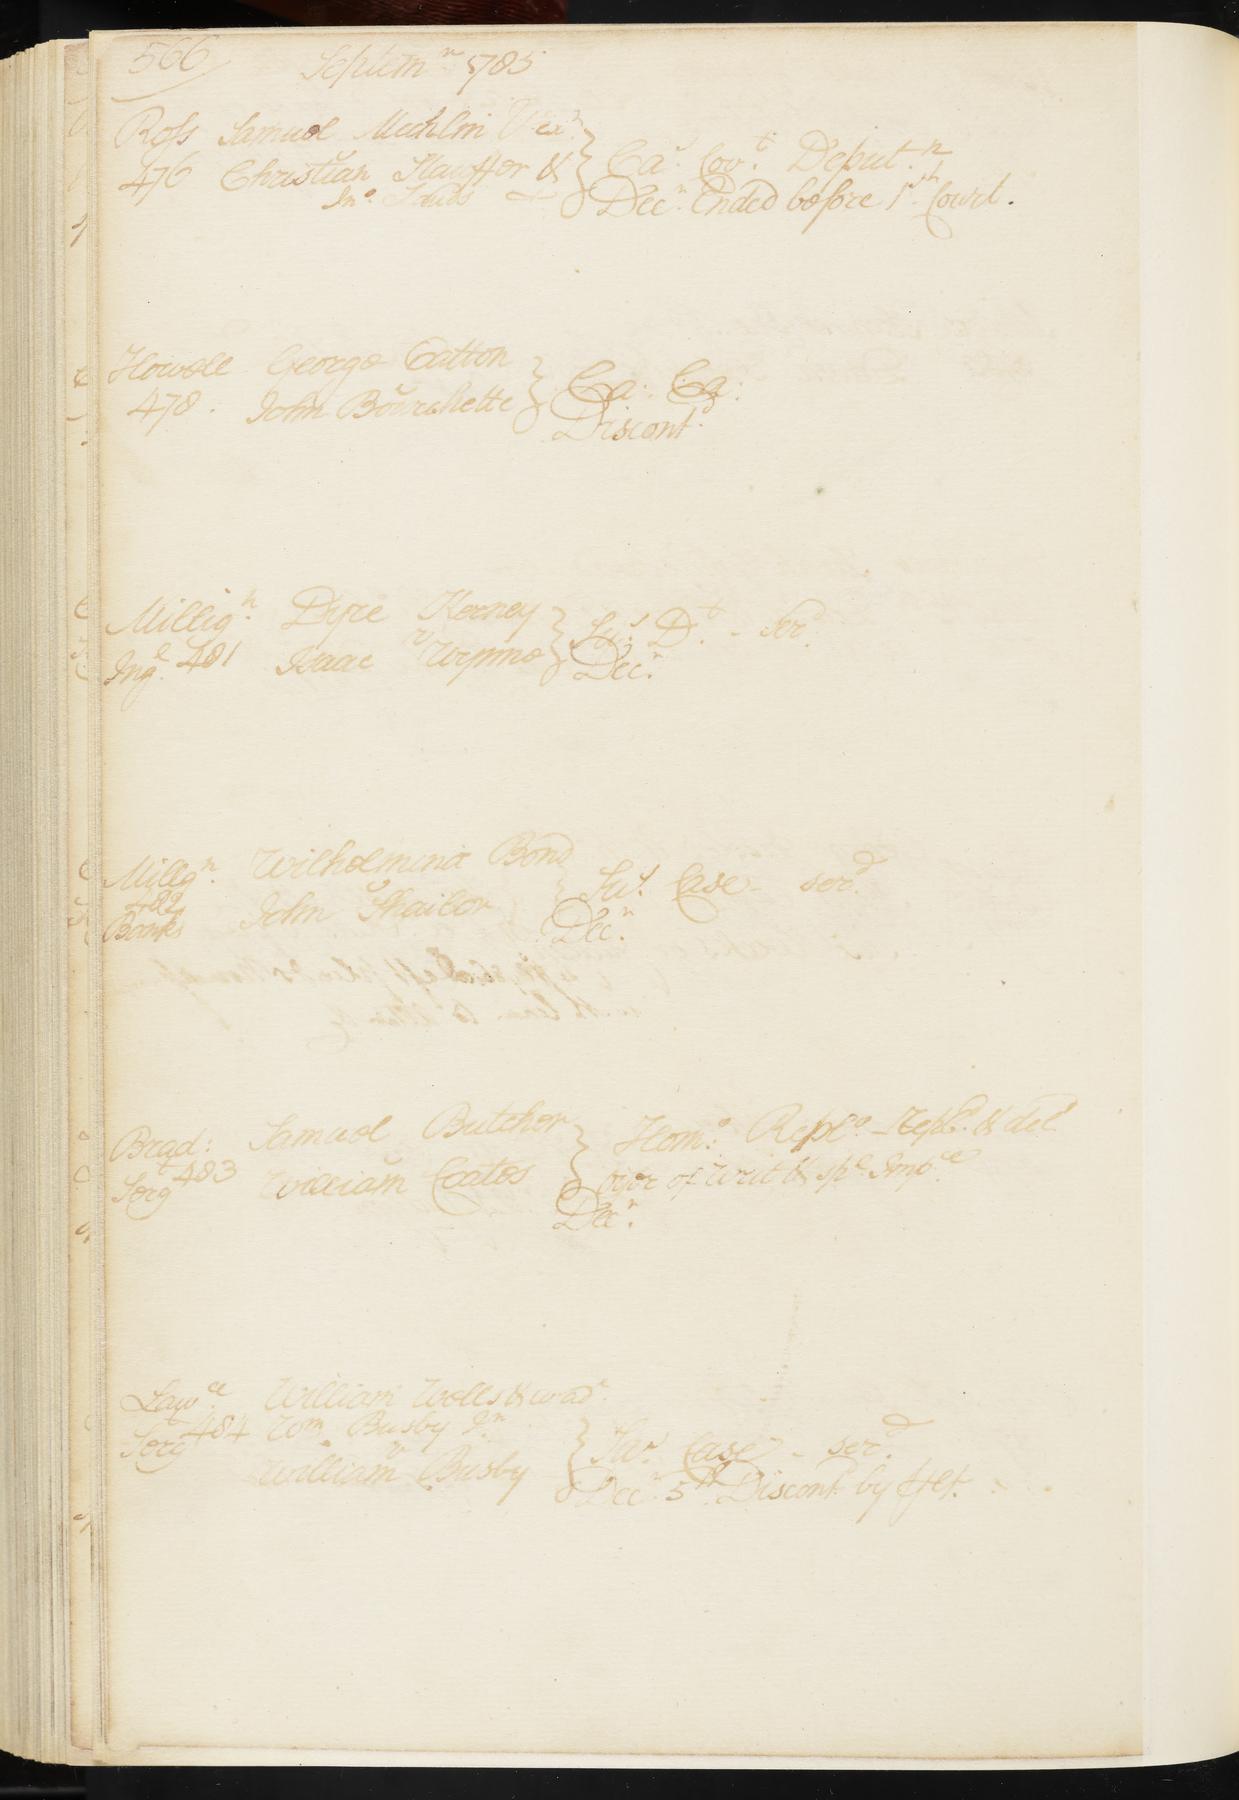 566 Septemr 1785
Ross Samuel Mechlin
476 Christian Stauffer &
Jno.
Ca: Cov:t Deput:n
Decn. Ended before 1st Court.
Howell George Catton
478. John Bourchette
Ca: Ca:
Discontd.
Millign. Dyre Kerney
Ingl. 481 Isaac v Wynne
Sus Dt. - serd.
Decn.
Millgn. Wilhelmina Bond
482
Banks John Shailor
Sus. Case - serd.
Decn.
Brad: Samuel Butcher
Sergt 483 William Coates
Hom:e Replo. Repld. & deld
oyer of Writ & spl Impce
Decn.
Lawce. William Wells & wad
Serg 484 Wm. Busby Jn.
William v Busby
Case - serd.
Decr. 5th. Discont by